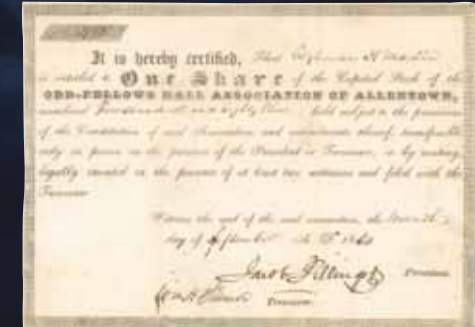 It is hereby certified, That
is entitled to One Share of the Capital Stock of the
ODD-FELLOWS HALL ASSOCIATION OF ALLENTOWN,
numbered held subject to the provisions
of the Constitution of said Association and amendments thereof, transferable
only in person in the presence of the President or Treasurer, or by writing,
legally executed in the presence of at least two witnesses and filed with the
Treasurer
Witness the seal of the said association, the seventh
day of September A. D. 18
Jacob President
Treasurer